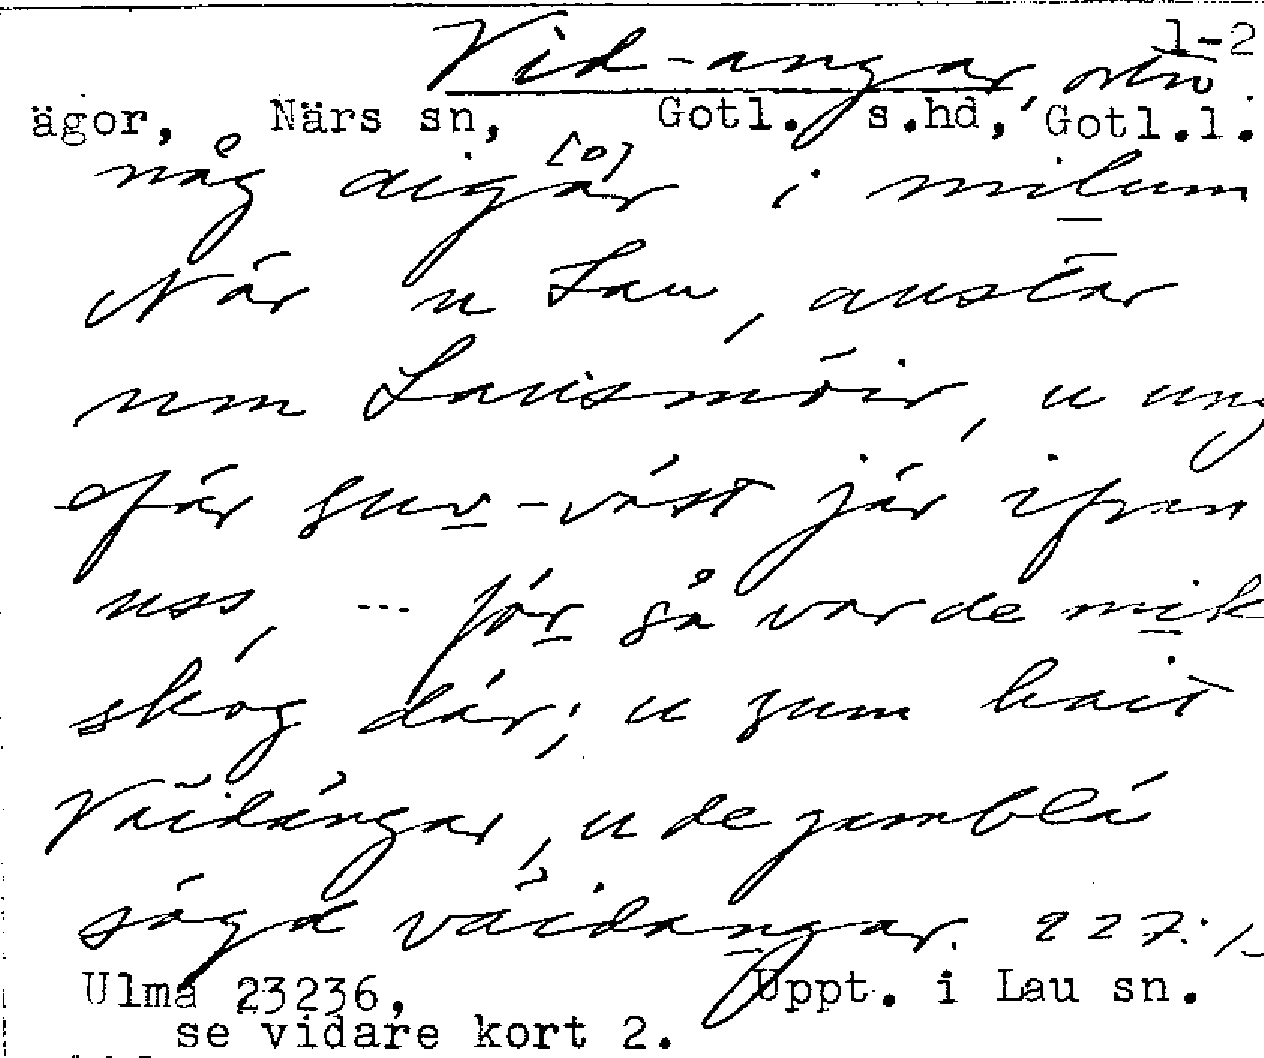 1-2
Vid-angar, ortn
ägor, Närs sn, Gotl. s.hd, Gotl.l.
någ aigår [o] i milum
När u Lau, austar
um Lausmöir, u ung
efär suv-väst jär ifran
uss, --- för så var de mik
skog där; u sum hait
Väidángar, u de gamblá
sögd väidangar. 227:1-
Ulma 23236, Uppt. i Lau sn.
se vidare kort 2.